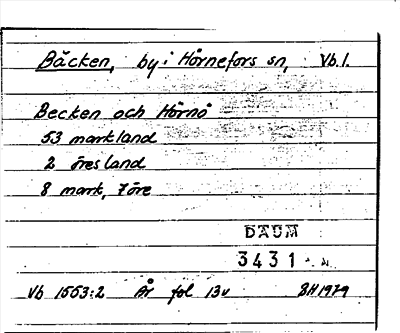 Bäcken, by i Hörnefors sn, Vb.l.
Becken och Hörnö
53 markland
2 öresland
8 mark, 7 öre
DAUM
3431
Vb 1553:2 År fol 13v BH 1979